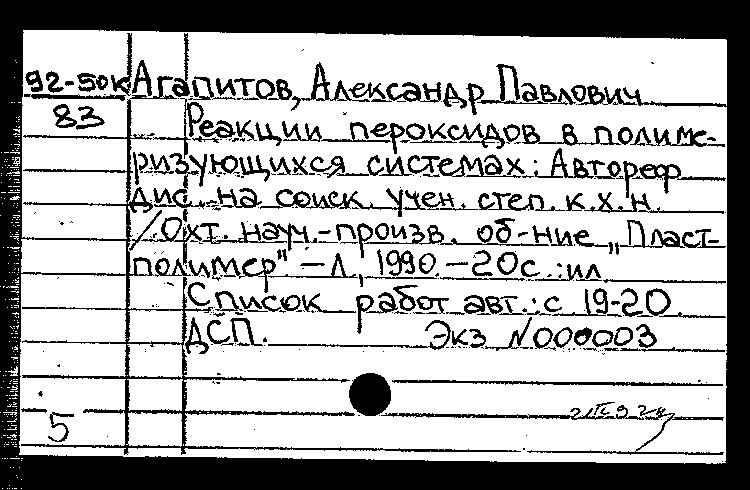 92-50к Агапитов, Александр Павлович
83 Реакции пероксидов в полиме-
ризующихся системах: Автореф
дис. на соиск. учен. степ. к.х.н.
/Охт. науч.-произв. об-ние „Пласт-
полимер" – Л., 1990. – 20с.:ил
Список работ авт.: с 19-20.
ДСП. Экз №000003
5